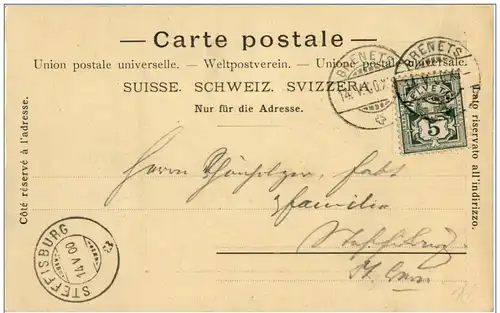 — Carte postale —
Union postale universelle. — Weltpostverein. — Unione postale universale.
SUISSE. SCHWEIZ. SVIZZERA.
Nur für die Adresse.
Côté réservé à l'adresse.
Lato riservato all'indirizzo.
BRENETS
14.V.00
BRENETS
HELVETIA
5
Herrn
familie
Steffisburg
Kt. Bern
STEFFISBURG
14 V 00